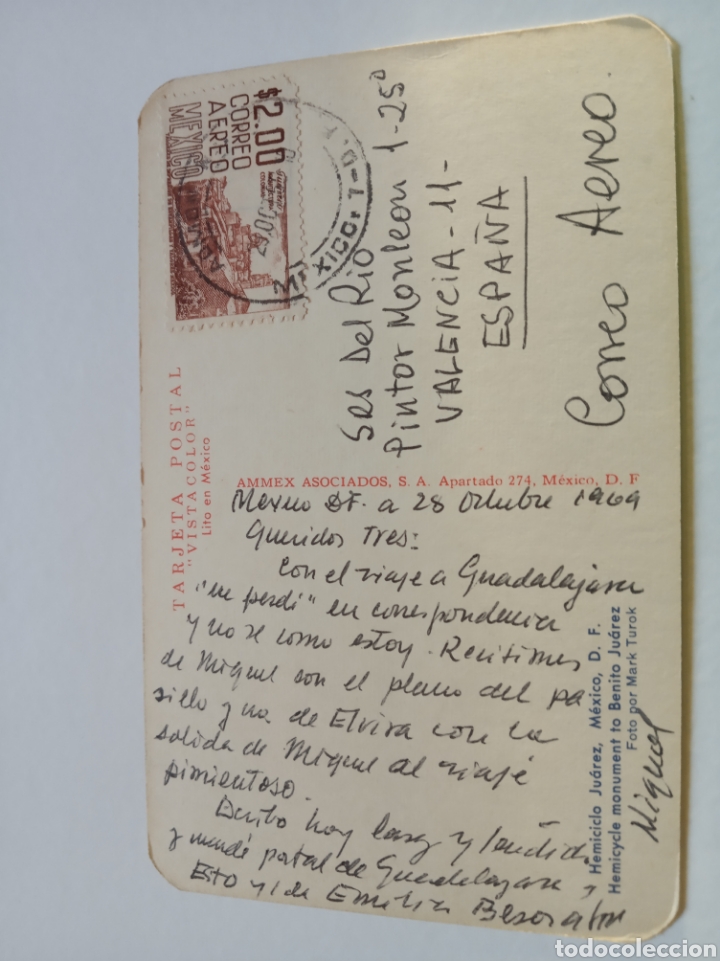 $2.00
CORREO
AEREO
MEXICO
MEXICO 1-D.F.
TARJETA POSTAL
"VISTACOLOR"
Lito en México
Srs Del Rio
Pintor Monleon 1-25º
VALENCIA-11-
ESPAÑA
Correo Aereo.
AMMEX ASOCIADOS, S. A. Apartado 274, México, D. F
Mexico DF. a 28 Octubre 1969
Queridos Tres:
Con el viaje a Guadalajara
"me perdi" en correspondencia
y no se como estoy. Recibimos
de Miguel con el plano del pa
sillo y na. de Elvira con la
salida de Miguel al viaje
pimientoso.
Escribo hoy larg y
y mandé postal de Guadalajara y
Esto y 1 de Emilia
Miguel
Hemiciclo Juárez, México, D. F.
Hemicycle monument to Benito Juárez
Foto por Mark Turok
todocoleccion